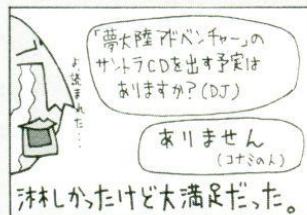 「夢大陸アドベンチャー」の
サントラCDを出す予定は
ありますか？(DJ)
よ、読まれた…
ありません
(コナミの人)
淋しかったけど大満足だった。